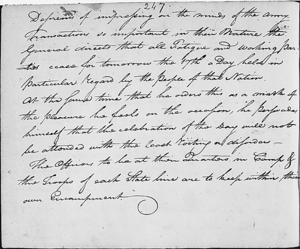 247
Desirous of impressing on the minds of the Army
Transactions so important in their Nature the
General directs that all Fatigue and Working Par-
ties cease for tomorrow the 17th a Day held in
Particular Regard by the People of that Nation
At the same time that he orders this as a mark of
the pleasure he feels on the occasion, he persuades
himself that the celebration of the Day will not
be attended with the least rioting or disorder —
The Officers to be at their Quarters in Camp &
the Troops of each State line are to keep within their
own Encampment.